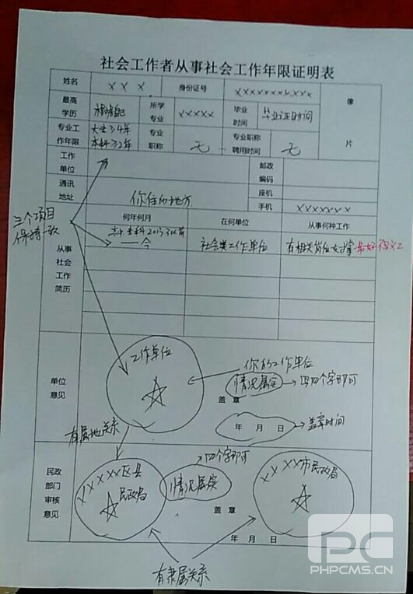 社会工作者从事社会工作年限证明表
姓名 XXX 身份证号 XXXXXXXXXX 像
最高学历 所学专业 XXXXX 毕业时间 毕业证时间
专业工作年限 大专34年 本科32年 专业职称 无 专业职称聘用时间 无 片
工作单位 邮政编码
通讯地址 你住的地方 座机
手机 XXXXXXX
三个项目
保持一致
何年何月 在何单位 从事何种工作
从事社会工作简历
——今 社会类工作单位
工作单位
你的工作单位
单位意见 情况属实 →写四个字即可
盖 章
年 月 日 →盖章时间
有属地关系
四个字即可
民政部门审核意见
XXXXX区县民政局
情况属实
XXXX市民政局
盖 章
年 月 日
有隶属关系
PHPCMS.CN